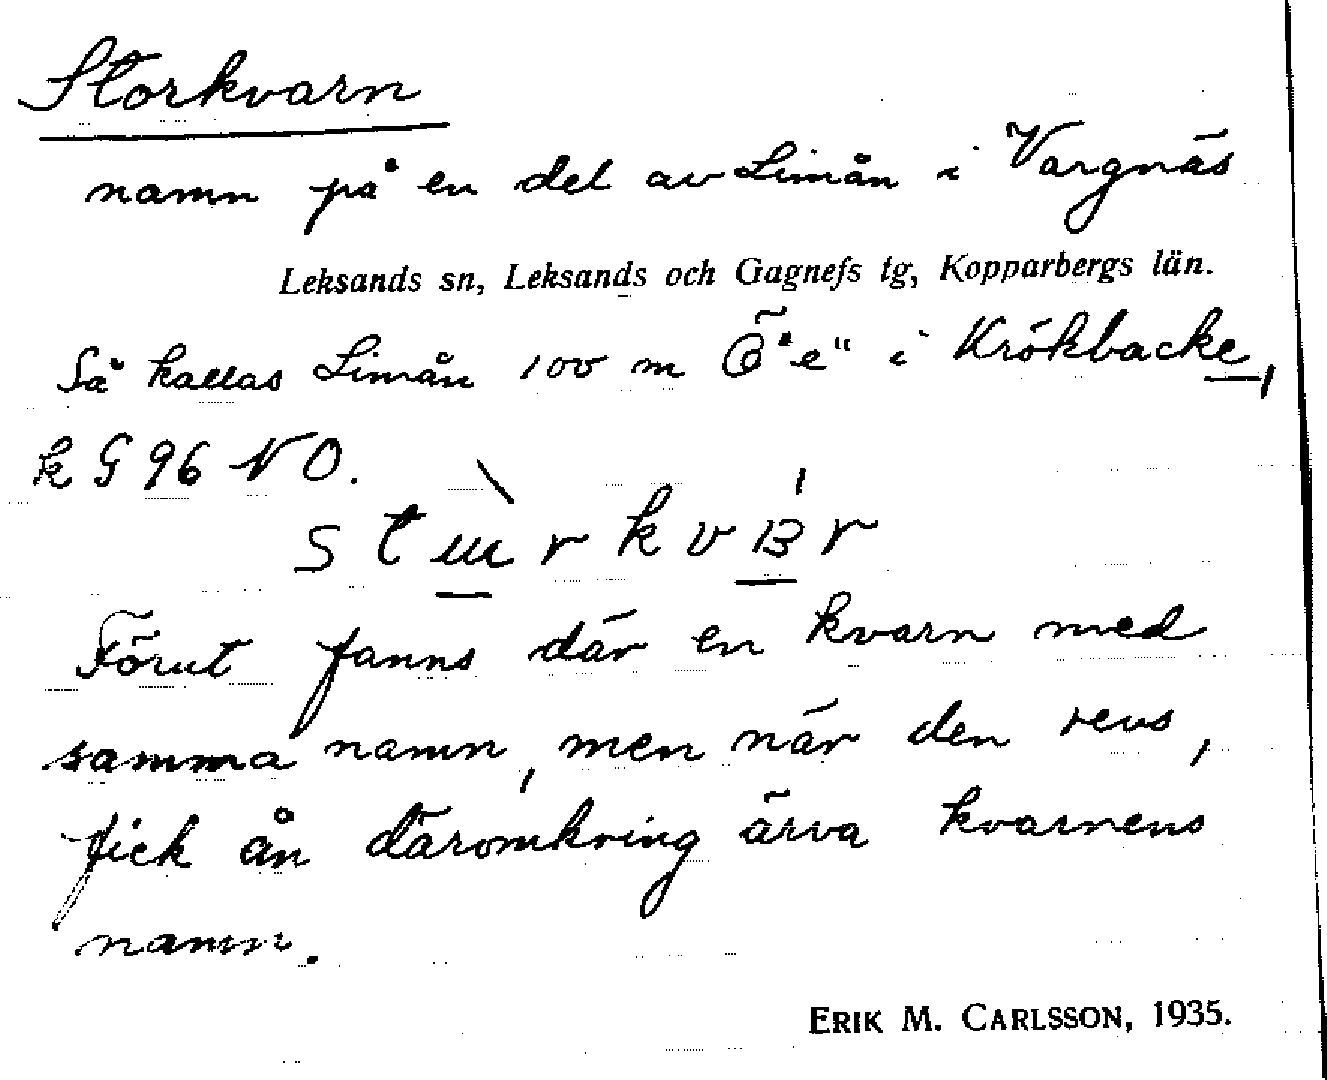 Storkvarn
namn på en del av Limån i Vargnäs
Leksands sn, Leksands och Gagnefs tg, Kopparbergs län.
Så kallas Limån 100 m Ö "e" i Krökbacke,
k G 96 NO.
Förut fanns där en kvarn med
samma namn, men när den revs,
fick ån däromkring ärva kvarnens
namn.
ERIK M. CARLSSON, 1935.